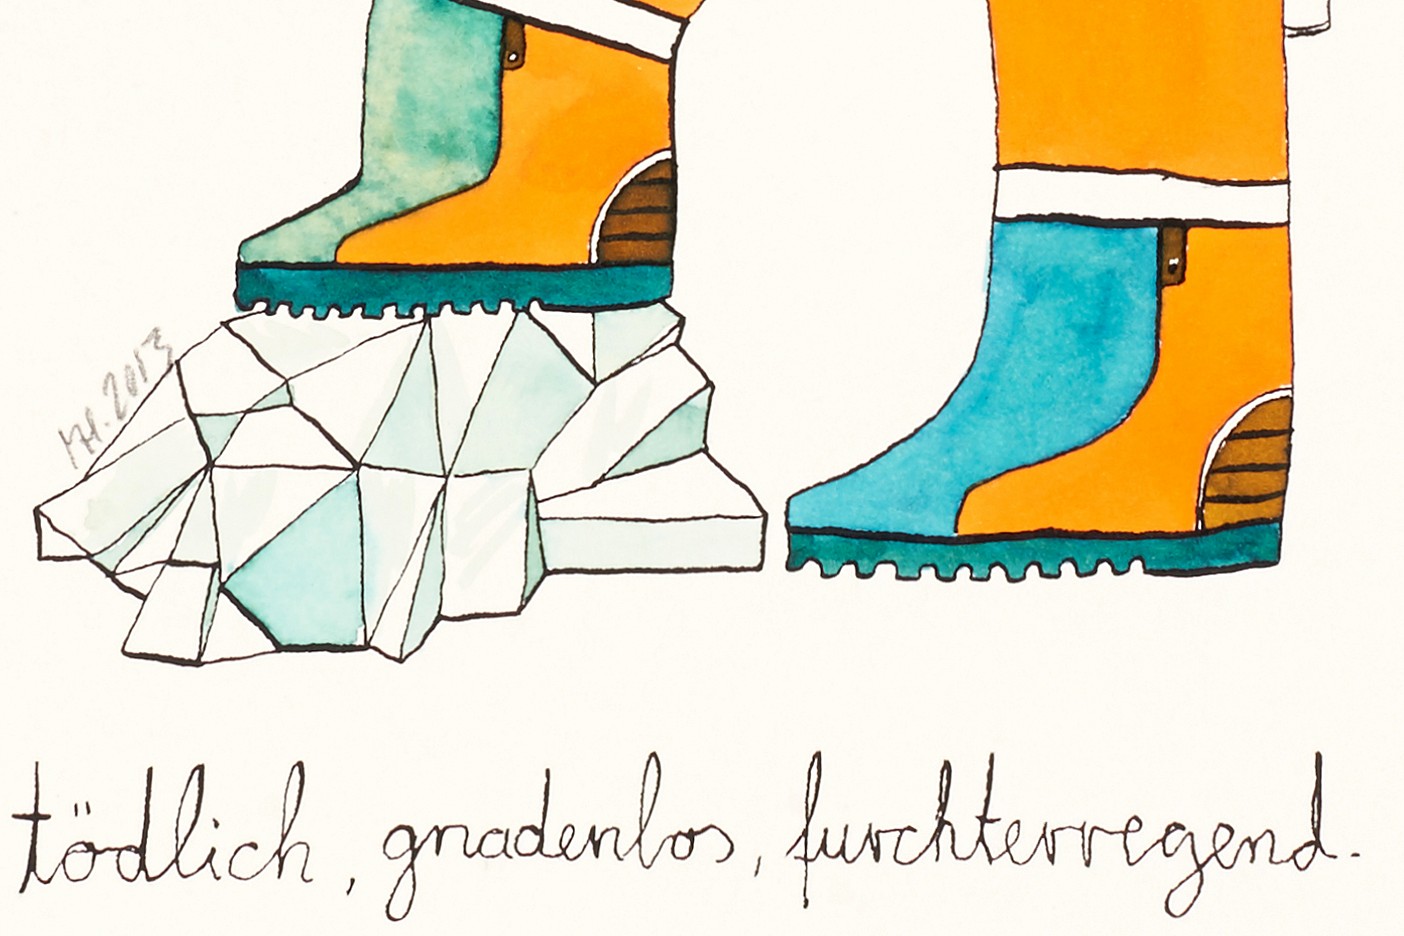 MH. 2013
tödlich, gnadenlos, furchterregend.